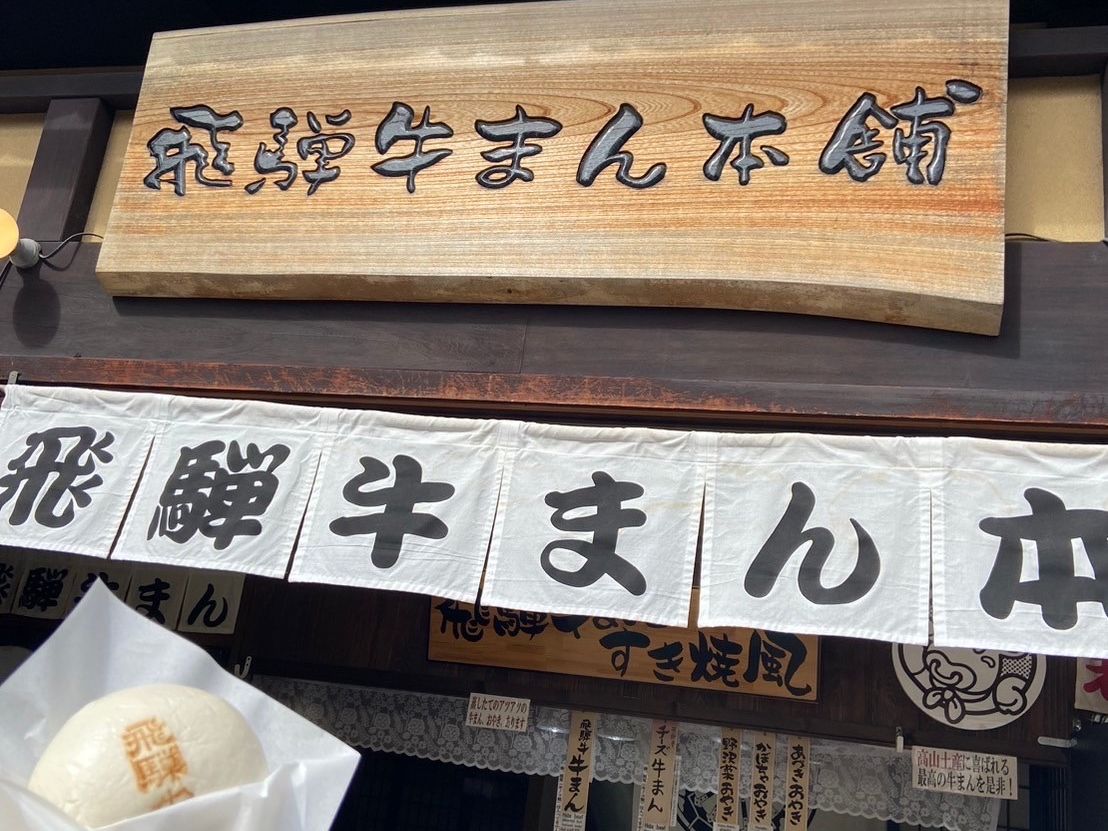 飛騨牛まん本舗
飛騨牛まん本
飛騨牛まん
飛騨牛ま
すき焼風
蒸したてのアツアツの
牛まん、おやき、有ります
飛騨牛牛まん
チーズ牛まん
野沢菜おやき
かぼちゃおやき
あづきおやき
高山土産に喜ばれる
最高の牛まんを是非!
飛騨
牛